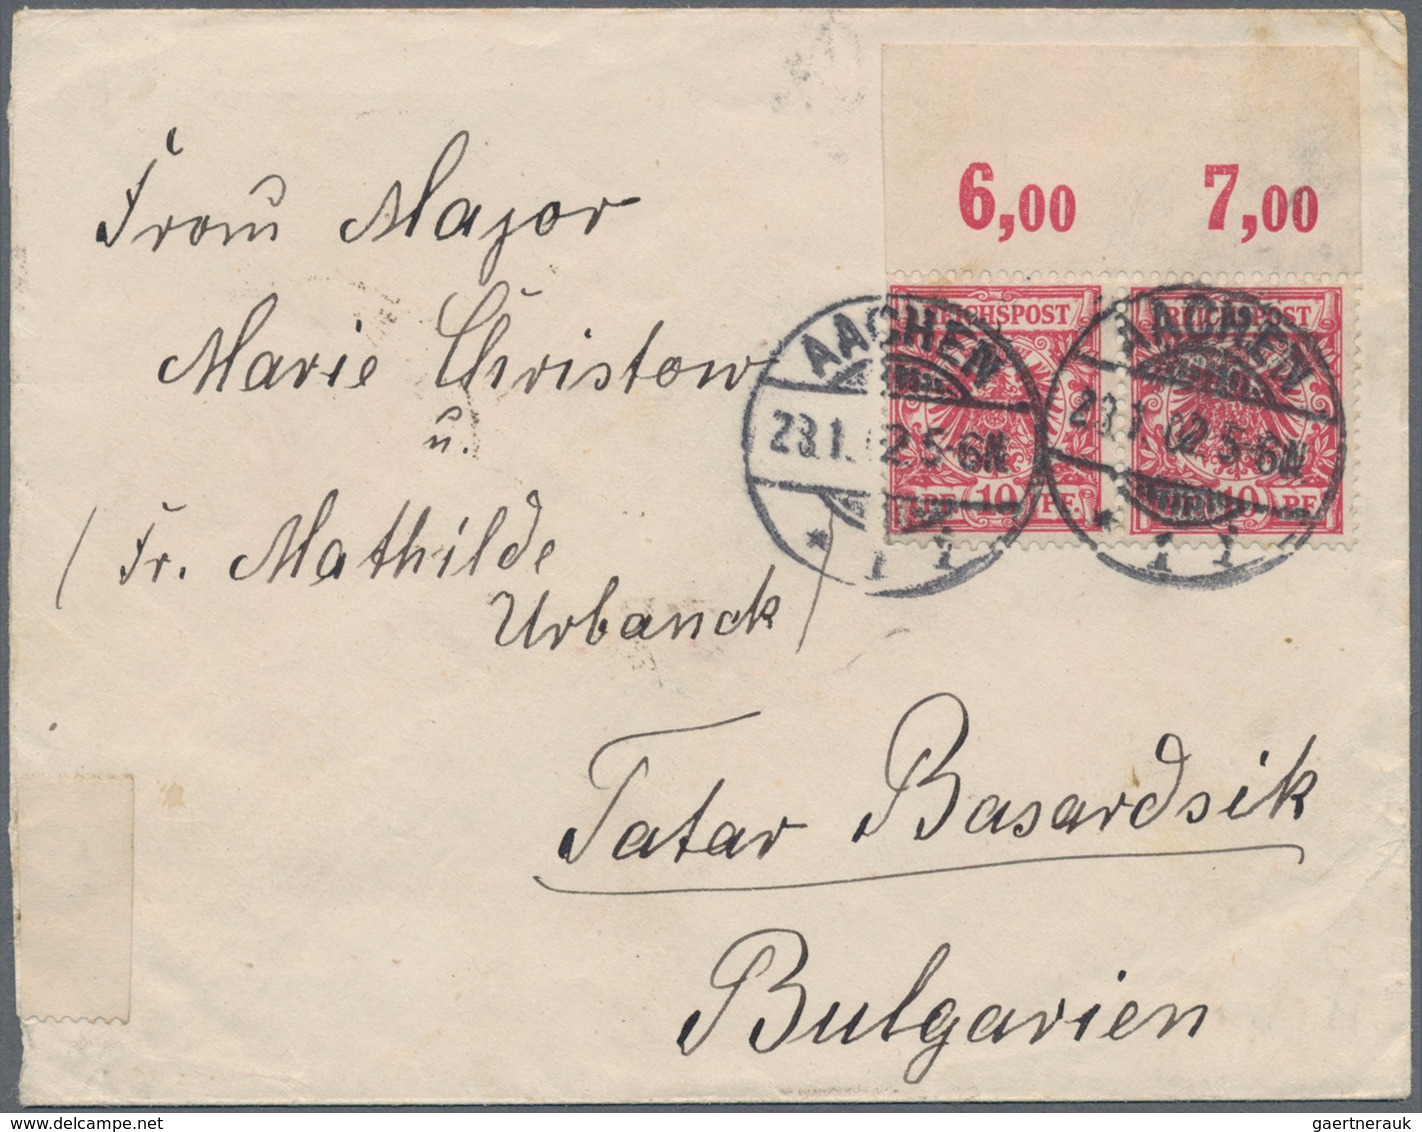 6,00 7,00
Frau Major
REICHSPOST REICHSPOST
AACHEN AACHEN
Marie Christow
u.
23.1.02.5-6N. 23.1.02.5-6N.
10 PF. 10 PF.
* 1 i * 1 i
(Fr. Mathilde
Urbanck)
Tatar Basardsik
Bulgarien
gaertnerauk @ www.delcampe.net